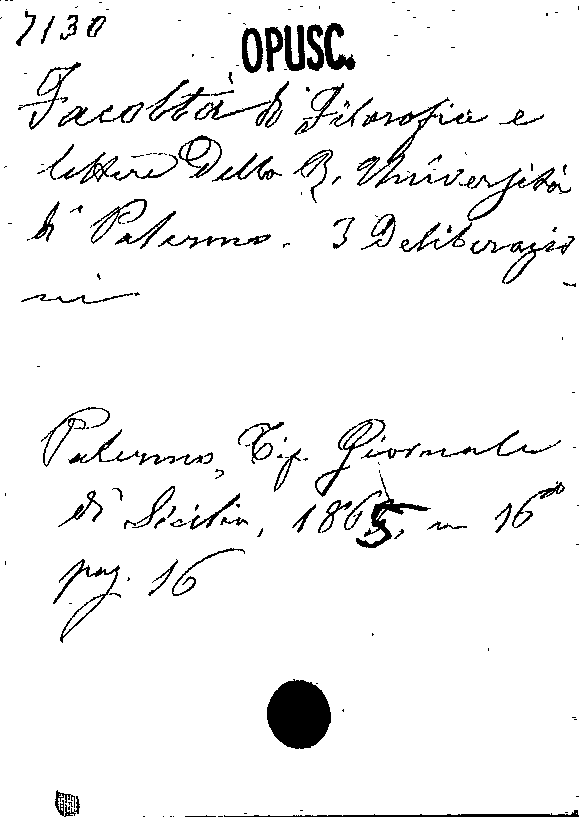 7130
OPUSC.
Facoltà di Filosofia e
lettere Della R. Università
di Palermo. 3 Deliberazio
ni
Palermo, Tip. Giornale
di Sicilia, 1865, in 16º
pag. 16